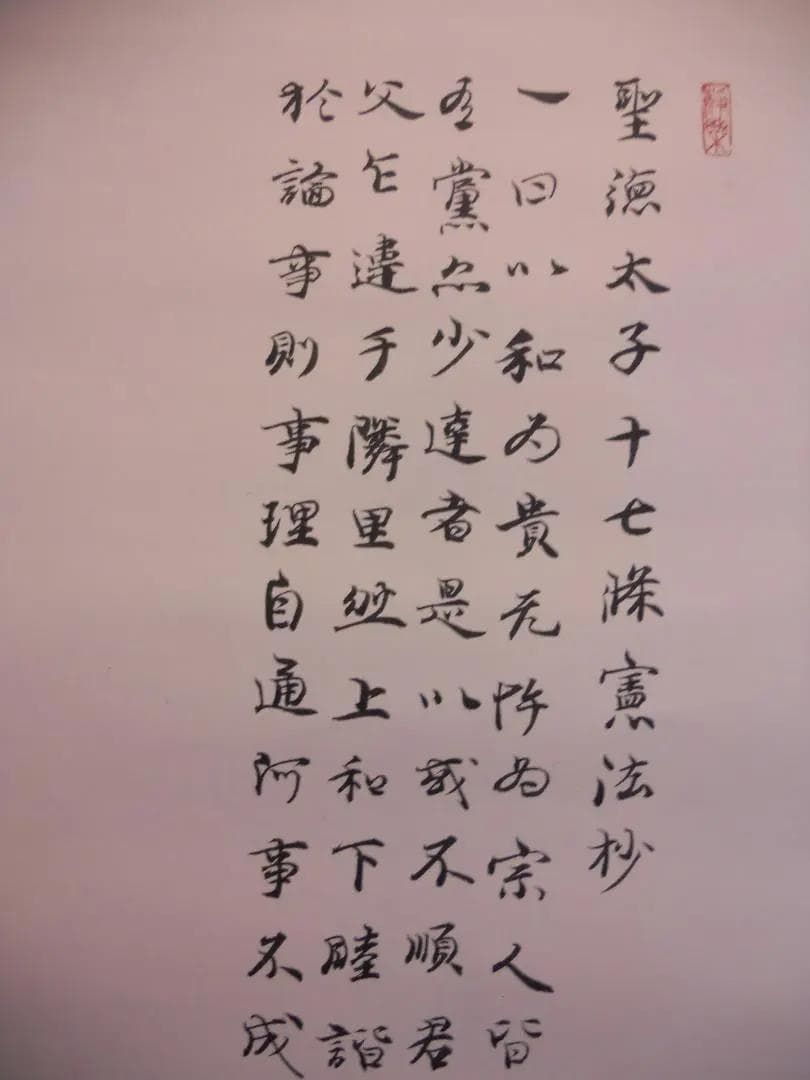 聖徳太子十七條憲法抄
一曰以和為貴无忤為宗人皆
有黨亦少達者是以或不順君
父乍違于隣里然上和下睦諧
於論事則事理自通何事不成